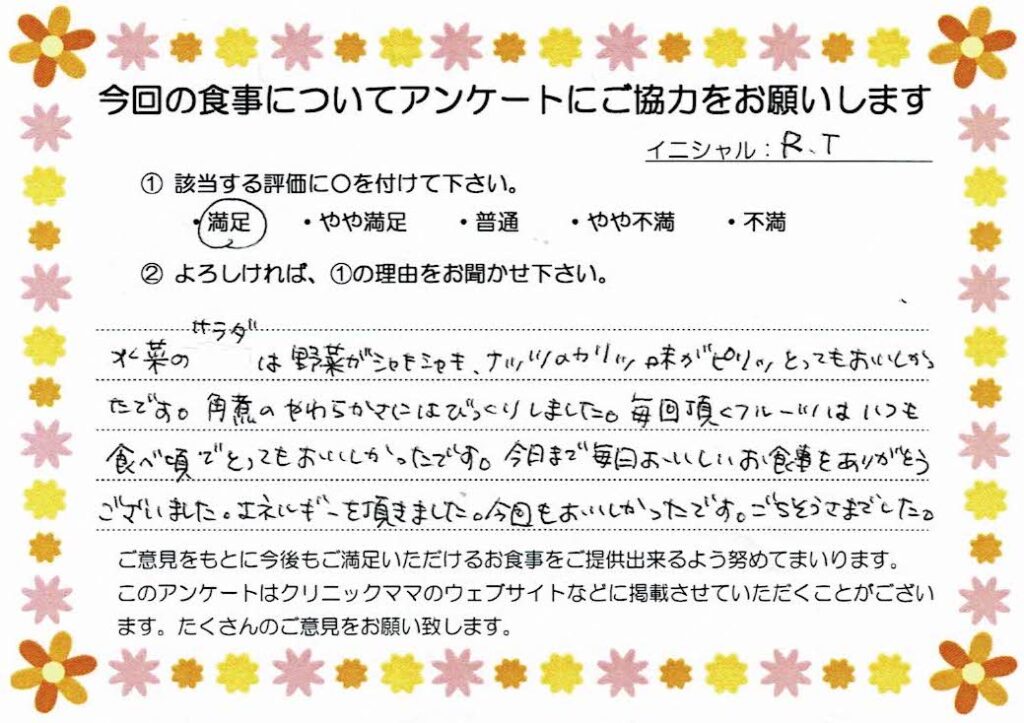 今回の食事についてアンケートにご協力をお願いします
イニシャル：R.T
① 該当する評価に〇を付けて下さい。
・満足 ・やや満足 ・普通 ・やや不満 ・不満
② よろしければ、①の理由をお聞かせ下さい。
水菜のサラダは野菜がシャキシャキ、ナッツのカリッ味がピリッとってもおいしかっ
たです。角煮のやわらかさにはびっくりしました。毎回頂くフルーツはいつも
食べ頃でとってもおいしかったです。今日まで毎日おいしいお食事をありがとう
ございました。エネルギーを頂きました。今回もおいしかったです。ごちそうさまでした。
ご意見をもとに今後もご満足いただけるお食事をご提供出来るよう努めてまいります。
このアンケートはクリニックママのウェブサイトなどに掲載させていただくことがござい
ます。たくさんのご意見をお願い致します。